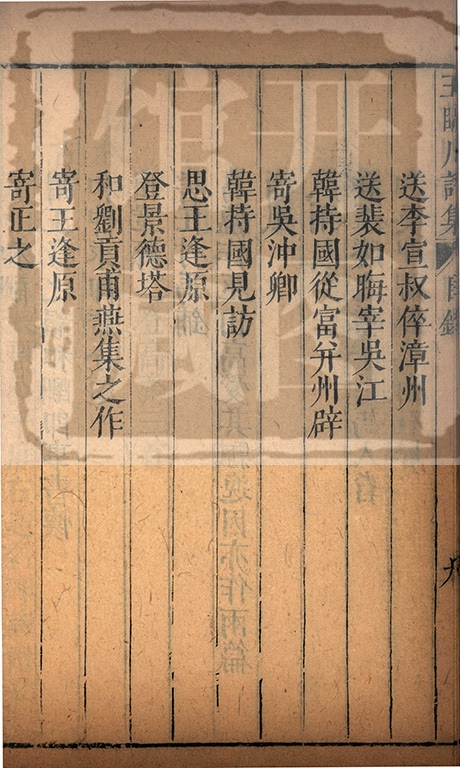 王臨川詩集 目錄 九
送李宣叔倅漳州
送裴如晦宰吳江
韓持國從富幷州辟
寄吳沖卿
韓持國見訪
思王逢原
登景德塔
和劉貢甫燕集之作
寄王逢原
寄正之